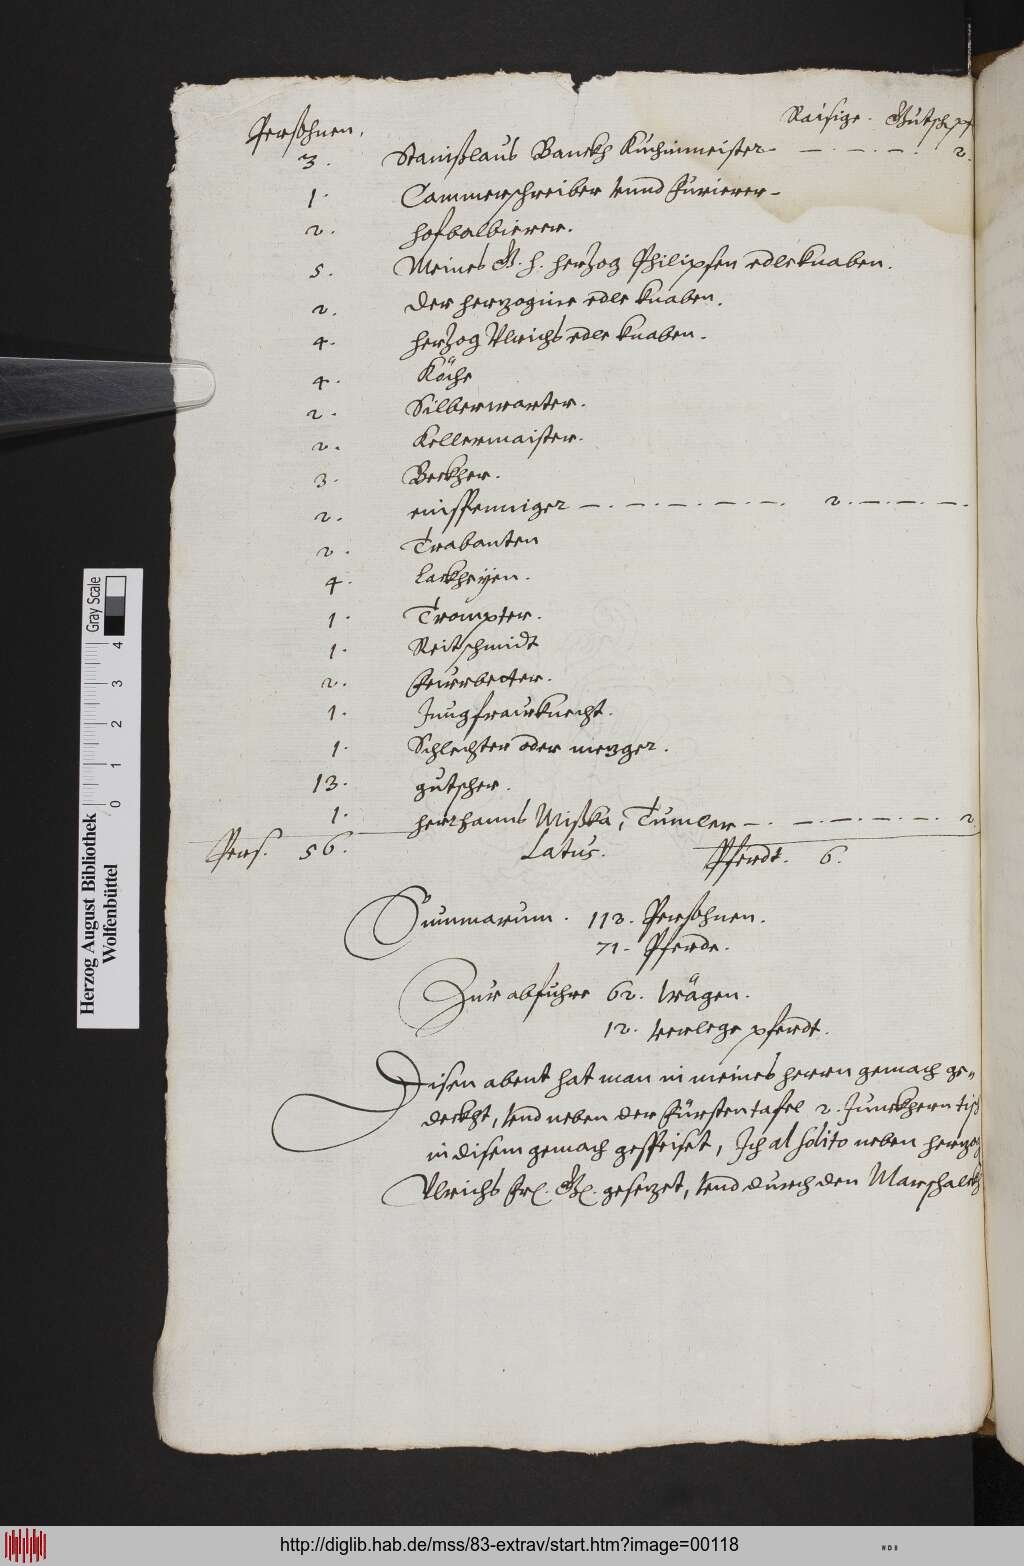 Persohnen. Raisige. Gutsch pf
3. Stanißlaus Banckh Kuchinmeister - . - . - . 2.
1. Cammerschreiber vnnd Furierer -
2. hofbalbierer.
5. Meines G. h. herzog Philipsen edleknaben.
2. der herzogine edle knaben.
4. herzog Vlrichs edle knaben.
4. Köche
2. Silberwarter.
2. Kellermaister.
3. Beckher.
2. einspenniger - . - . - . - . - . 2. - . - . - .
2. Trabanten
4. lackheyen.
1. Trompter.
1. Reitschmidt
2. Feurbeter.
1. Jungfraw knecht.
1. Schlechter oder mezger.
13. gutscher.
1. herr hanns Mißka, Tumler - . - . - . - . - . 2.
Pers. 56. Latus. Pferdt. 6.
Summarum. 113. Persohnen.
71. Pferde.
Zur abfuhre 62. wägen.
12. verlege pferdt.
Disen abent hat man in meines herrn gemach ge„
deckht, vnd neben der Fürsten tafel 2. Junckhern tisch
in disem gemach gespeiset, Ich al solito neben herzog
Vlrichs Frl. Gl. gesezet, vnd durch den Marschalckh
Herzog August Bibliothek
Wolfenbüttel
Gray Scale
0 1 2 3 4
http://diglib.hab.de/mss/83-extrav/start.htm?image=00118